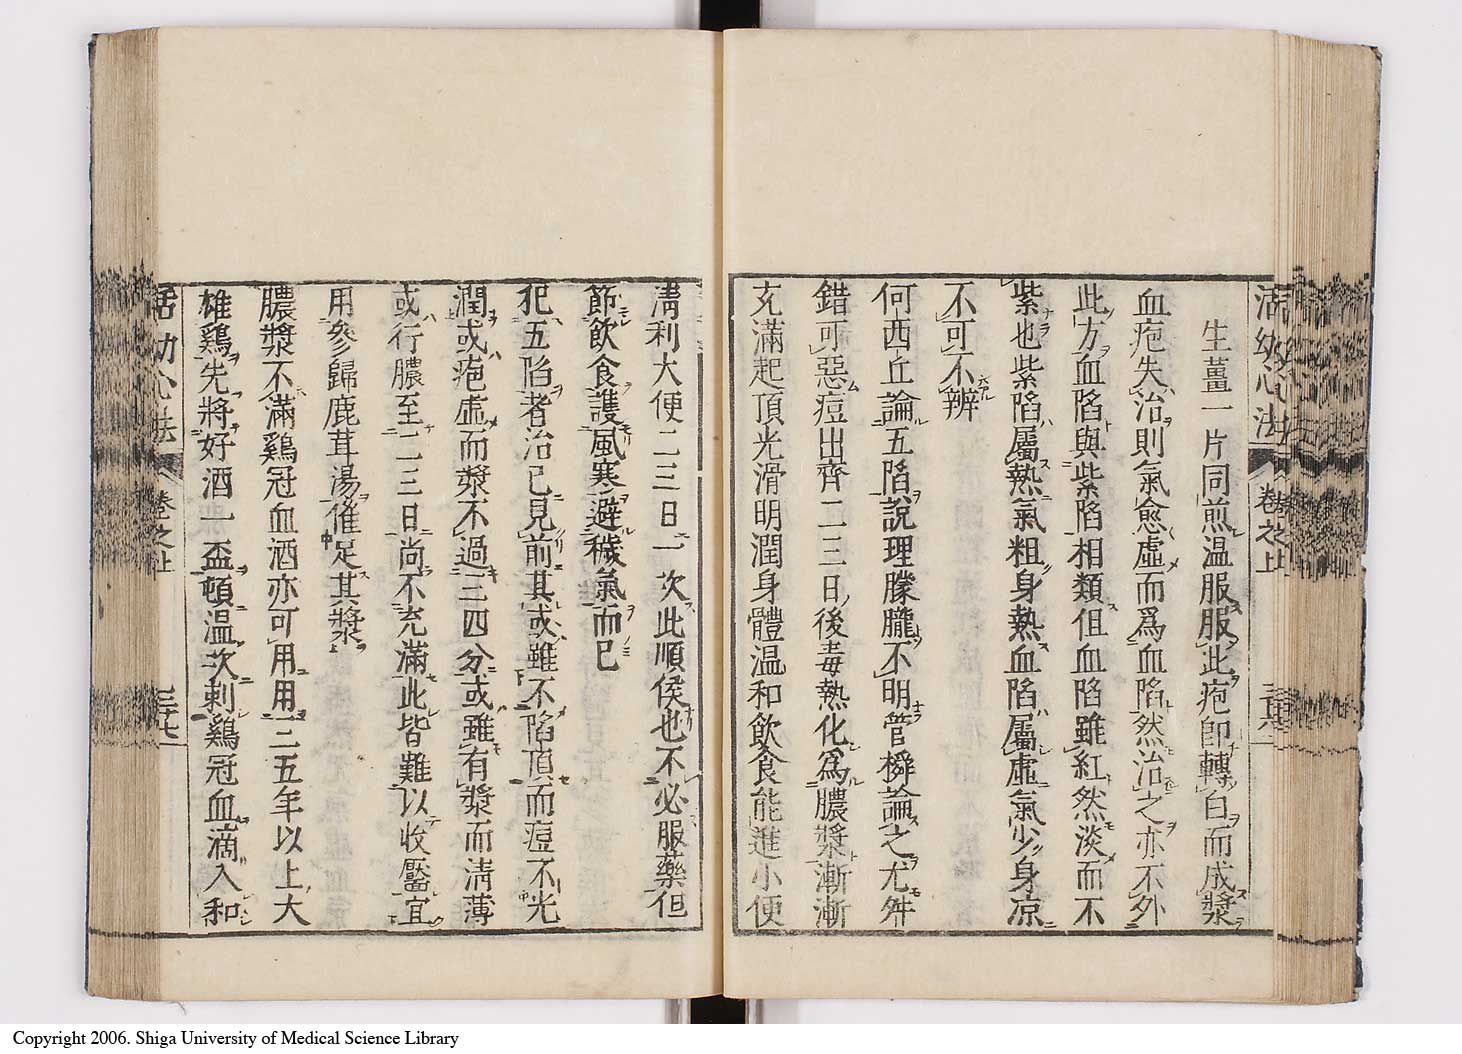 活幼心法 卷之上
生薑一片同煎温服服此疱即轉白而成漿
血疱失治則氣愈虛而爲血陷然治之亦不外
此方血陷與紫陷相類但血陷雖紅然淡而不
紫也紫陷屬熱氣粗身熱血陷屬虛氣少身凉
不可不辨
何西丘論五陷説理朦朧不明管橓論之尤舛
錯可惡痘出齊二三日後毒熱化爲膿漿漸漸
充滿起頂光滑明潤身體温和飲食能進小便
清利大便二三日一次此順候也不必服藥但
節飲食護風寒避穢氣而已
犯五陷者治已見前其或雖不陷頂而痘不光
潤或疱虛而漿不過三四分或雖有漿而清薄
或行膿至二三日尚不充滿此皆難以收靨宜
用參歸鹿茸湯催足其漿
膿漿不滿鷄冠血酒亦可用用三五年以上大
雄鷄先將好酒一盃頓温次刺鷄冠血滴入和
活幼心法 卷之上 三十七
Copyright 2006. Shiga University of Medical Science Library